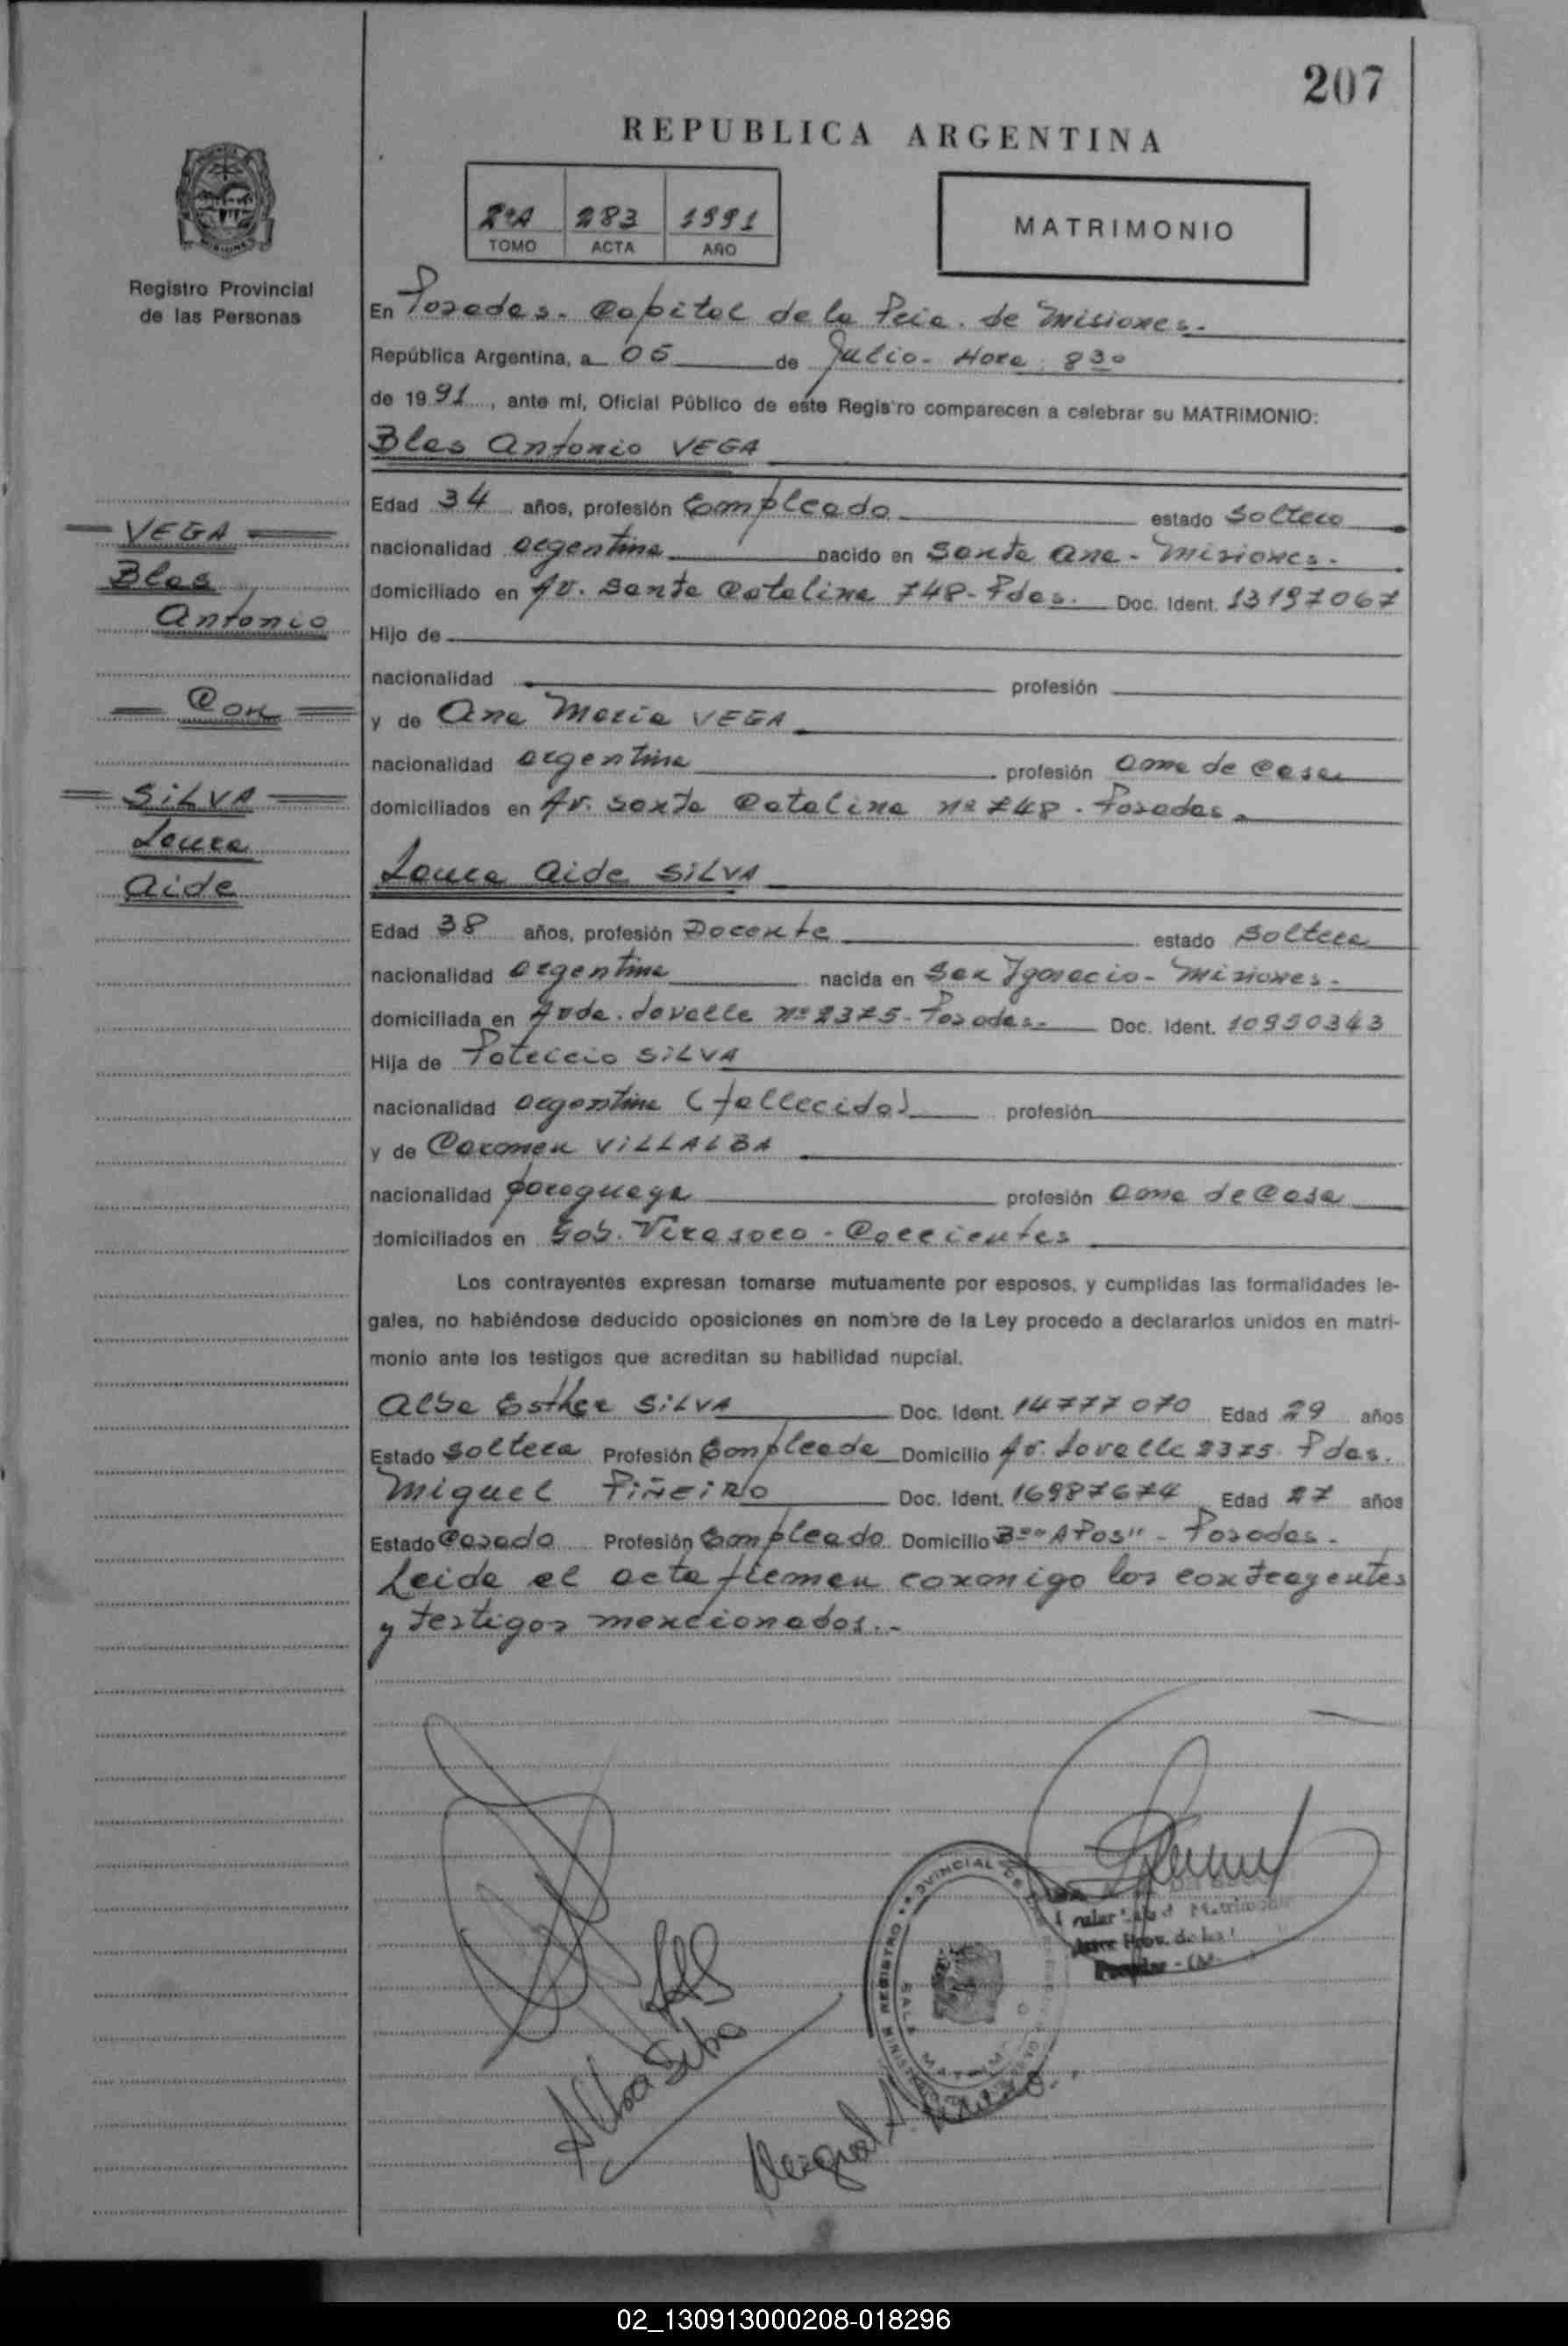 207
REPUBLICA ARGENTINA
2ºA 283 1991
TOMO ACTA AÑO
MATRIMONIO
Registro Provincial
de las Personas
En Posadas - Capital de la Pcia. de Misiones.-
República Argentina, a 05 de Julio - Hora 8 30
de 1991, ante mí, Oficial Público de este Registro comparecen a celebrar su MATRIMONIO:
Blas Antonio VEGA
VEGA
Blas
Antonio
Con
SILVA
Laura
Aide
Edad 34 años, profesión Empleado estado Soltero
nacionalidad argentina nacido en Santa Ana - Misiones -
domiciliado en Av. Santa Catalina 748 - Pdas. Doc. Ident. 13197067
Hijo de
nacionalidad profesión
y de Ana Maria VEGA
nacionalidad argentina profesión ama de casa
domiciliados en Av. Santa Catalina nº 748 - Posadas.
Laura Aide SILVA
Edad 38 años, profesión Docente estado Soltera
nacionalidad argentina nacida en San Ignacio - Misiones.
domiciliada en Avda. Lavalle nº 2375 - Posadas. Doc. Ident. 10950343
Hija de Patricio SILVA
nacionalidad argentina (fallecido) profesión
y de Carmen VILLALBA
nacionalidad paraguaya profesión ama de casa
domiciliados en Gob. Virasoro - Corrientes
Los contrayentes expresan tomarse mutuamente por esposos, y cumplidas las formalidades le-
gales, no habiéndose deducido oposiciones en nombre de la Ley procedo a declararlos unidos en matri-
monio ante los testigos que acreditan su habilidad nupcial.
Alba Esther SILVA Doc. Ident. 14777070 Edad 29 años
Estado Soltera Profesión Empleada Domicilio Av. Lavalle 2375 Pdas.
Miguel PIÑEIRO Doc. Ident. 16987674 Edad 27 años
Estado Casado Profesión Empleado Domicilio Bº "APOS" - Posadas -
Leida el acta firman conmigo los contrayentes
y testigos mencionados.-
Alba Silva
Miguel A.
REGISTRO PROVINCIAL DE
SALA
02_130913000208-018296